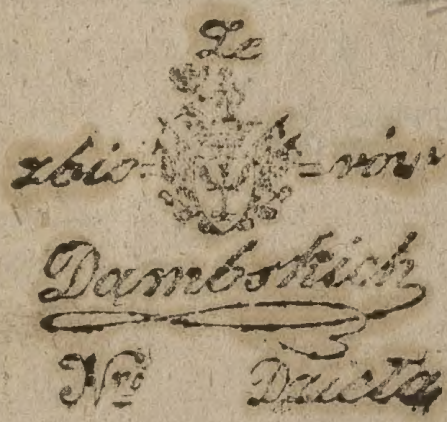 Ze
zbio=rów
Dambskich
Nro Dzieła